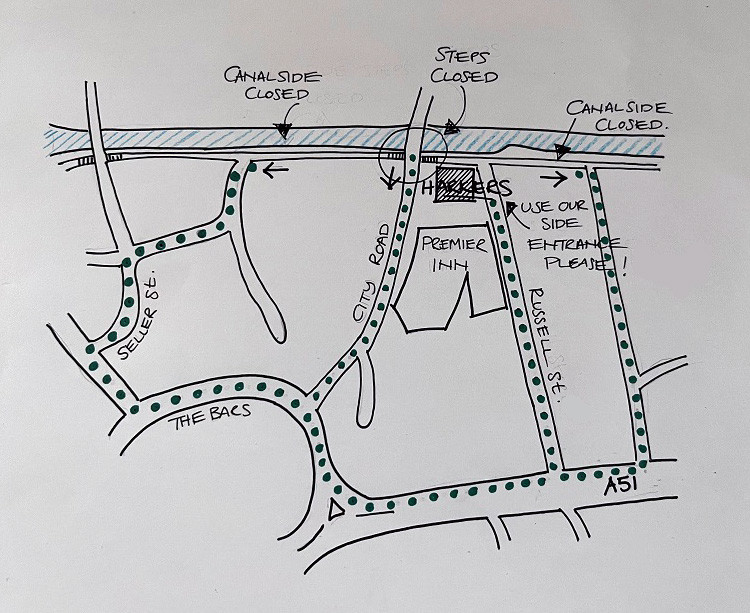 STEPS
CLOSED
CANALSIDE
CLOSED
CANALSIDE
CLOSED.
HARKERS
USE OUR
SIDE
ENTRANCE
PLEASE!
PREMIER
INN
CITY ROAD
SELLER ST.
RUSSELL ST.
THE BARS
A51